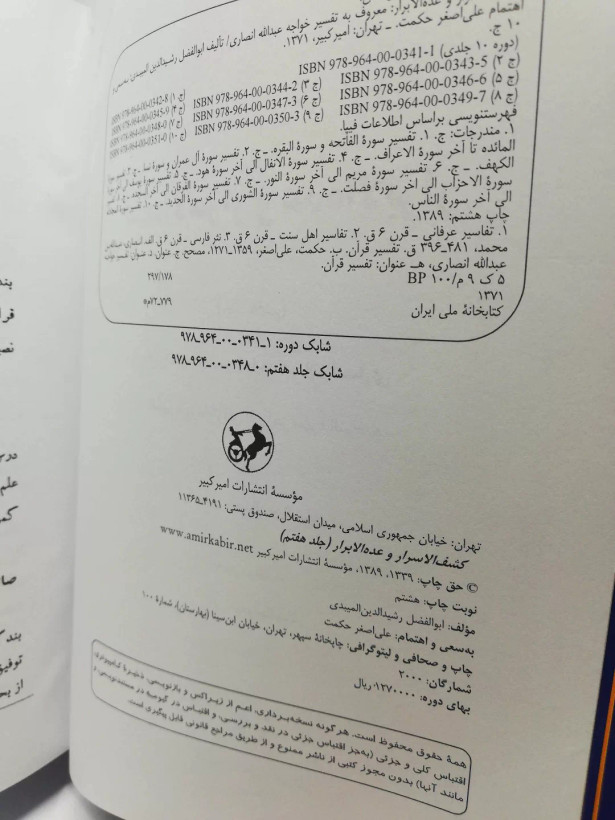 و عده‌الابرار: معروف به تفسیر خواجه عبدالله انصاری/ تألیف ابوالفضل رشیدالدین المیبدی؛
اهتمام علی‌اصغر حکمت. ـ تهران: امیرکبیر، ۱۳۷۱.
۱۰ ج.
ISBN 978-964-00-0341-1 (دوره ۱۰ جلدی)
(ج ۱) ISBN 978-964-00-0342-8 (ج ۲) ISBN 978-964-00-0343-5
(ج ۳) ISBN 978-964-00-0344-2 (ج ۴) ISBN 978-964-00-0345-9
(ج ۵) ISBN 978-964-00-0346-6 (ج ۶) ISBN 978-964-00-0347-3
(ج ۷) ISBN 978-964-00-0348-0 (ج ۸) ISBN 978-964-00-0349-7
(ج ۹) ISBN 978-964-00-0350-3 (ج ۱۰) ISBN 978-964-00-0351-0
فهرستنویسی براساس اطلاعات فیپا.
۱. مندرجات: ج. ۱. تفسیر سورة الفاتحه و سورة البقره. ـ ج. ۲. تفسیر سورة آل عمران و سورة نسا. ـ ج. ۳. تفسیر سورة
المائده تا آخر سورة الاعراف. ـ ج. ۴. تفسیر سورة الانفال الی آخر سورة هود. ـ ج. ۵. تفسیر سورة یوسف الی آخر سورة
الکهف. ـ ج. ۶. تفسیر سورة مریم الی آخر سورة النور. ـ ج. ۷. تفسیر سورة الفرقان الی آخر السجده. ـ ج. ۸. تفسیر
سورة الاحزاب الی آخر سورة فصلت. ـ ج. ۹. تفسیر سورة الشوری الی آخر سورة الحدید. ـ ج. ۱۰. تفسیر سورة المجادله
الی آخر سورة الناس.
چاپ هشتم: ۱۳۸۹.
۱. تفاسیر عرفانی ـ قرن ۶ ق. ۲. تفاسیر اهل سنت ـ قرن ۶ ق. ۳. نثر فارسی ـ قرن ۶ ق. الف. انصاری، عبدالله‌بن
محمد، ۳۹۶ـ۴۸۱ ق. تفسیر قرآن. ب. حکمت، علی‌اصغر، ۱۳۵۹ـ۱۲۷۱، مصحح. ج. عنوان. د. عنوان: تفسیر خواجه
عبدالله انصاری. هـ. عنوان: تفسیر قرآن.
۲۹۷/۱۷۸
۵ ک ۹ م/ ۱۰۰ BP
۱۳۷۱
م۷۲ـ۷۷۹
کتابخانهٔ ملی ایران
شابک دوره: ۱ـ۰۳۴۱ـ۰۰ـ۹۶۴ـ۹۷۸
شابک جلد هفتم: ۰ـ۰۳۴۸ـ۰۰ـ۹۶۴ـ۹۷۸
مؤسسهٔ انتشارات امیرکبیر
تهران: خیابان جمهوری اسلامی، میدان استقلال، صندوق پستی: ۴۱۹۱ـ۱۱۳۶۵
کشف‌الاسرار و عده‌الابرار (جلد هفتم)
© حق چاپ: ۱۳۳۹، ۱۳۸۹، مؤسسهٔ انتشارات امیرکبیر www.amirkabir.net
نوبت چاپ: هشتم
مؤلف: ابوالفضل رشیدالدین‌المیبدی
به‌سعی و اهتمام: علی‌اصغر حکمت
چاپ و صحافی و لیتوگرافی: چاپخانهٔ سپهر، تهران، خیابان ابن‌سینا (بهارستان)، شمارهٔ ۱۰۰
شمارگان: ۲۰۰۰
بهای دوره: ۱۳۷۰۰۰۰ ریال
همهٔ حقوق محفوظ است. هرگونه نسخه‌برداری، اعم از زیراکس و بازنویسی، ذخیرهٔ کامپیوتری،
اقتباس کلی و جزئی (به‌جز اقتباس جزئی در نقد و بررسی، و اقتباس در گیومه در مستندنویسی، و
مانند آنها) بدون مجوز کتبی از ناشر ممنوع و از طریق مراجع قانونی قابل پیگیری است.